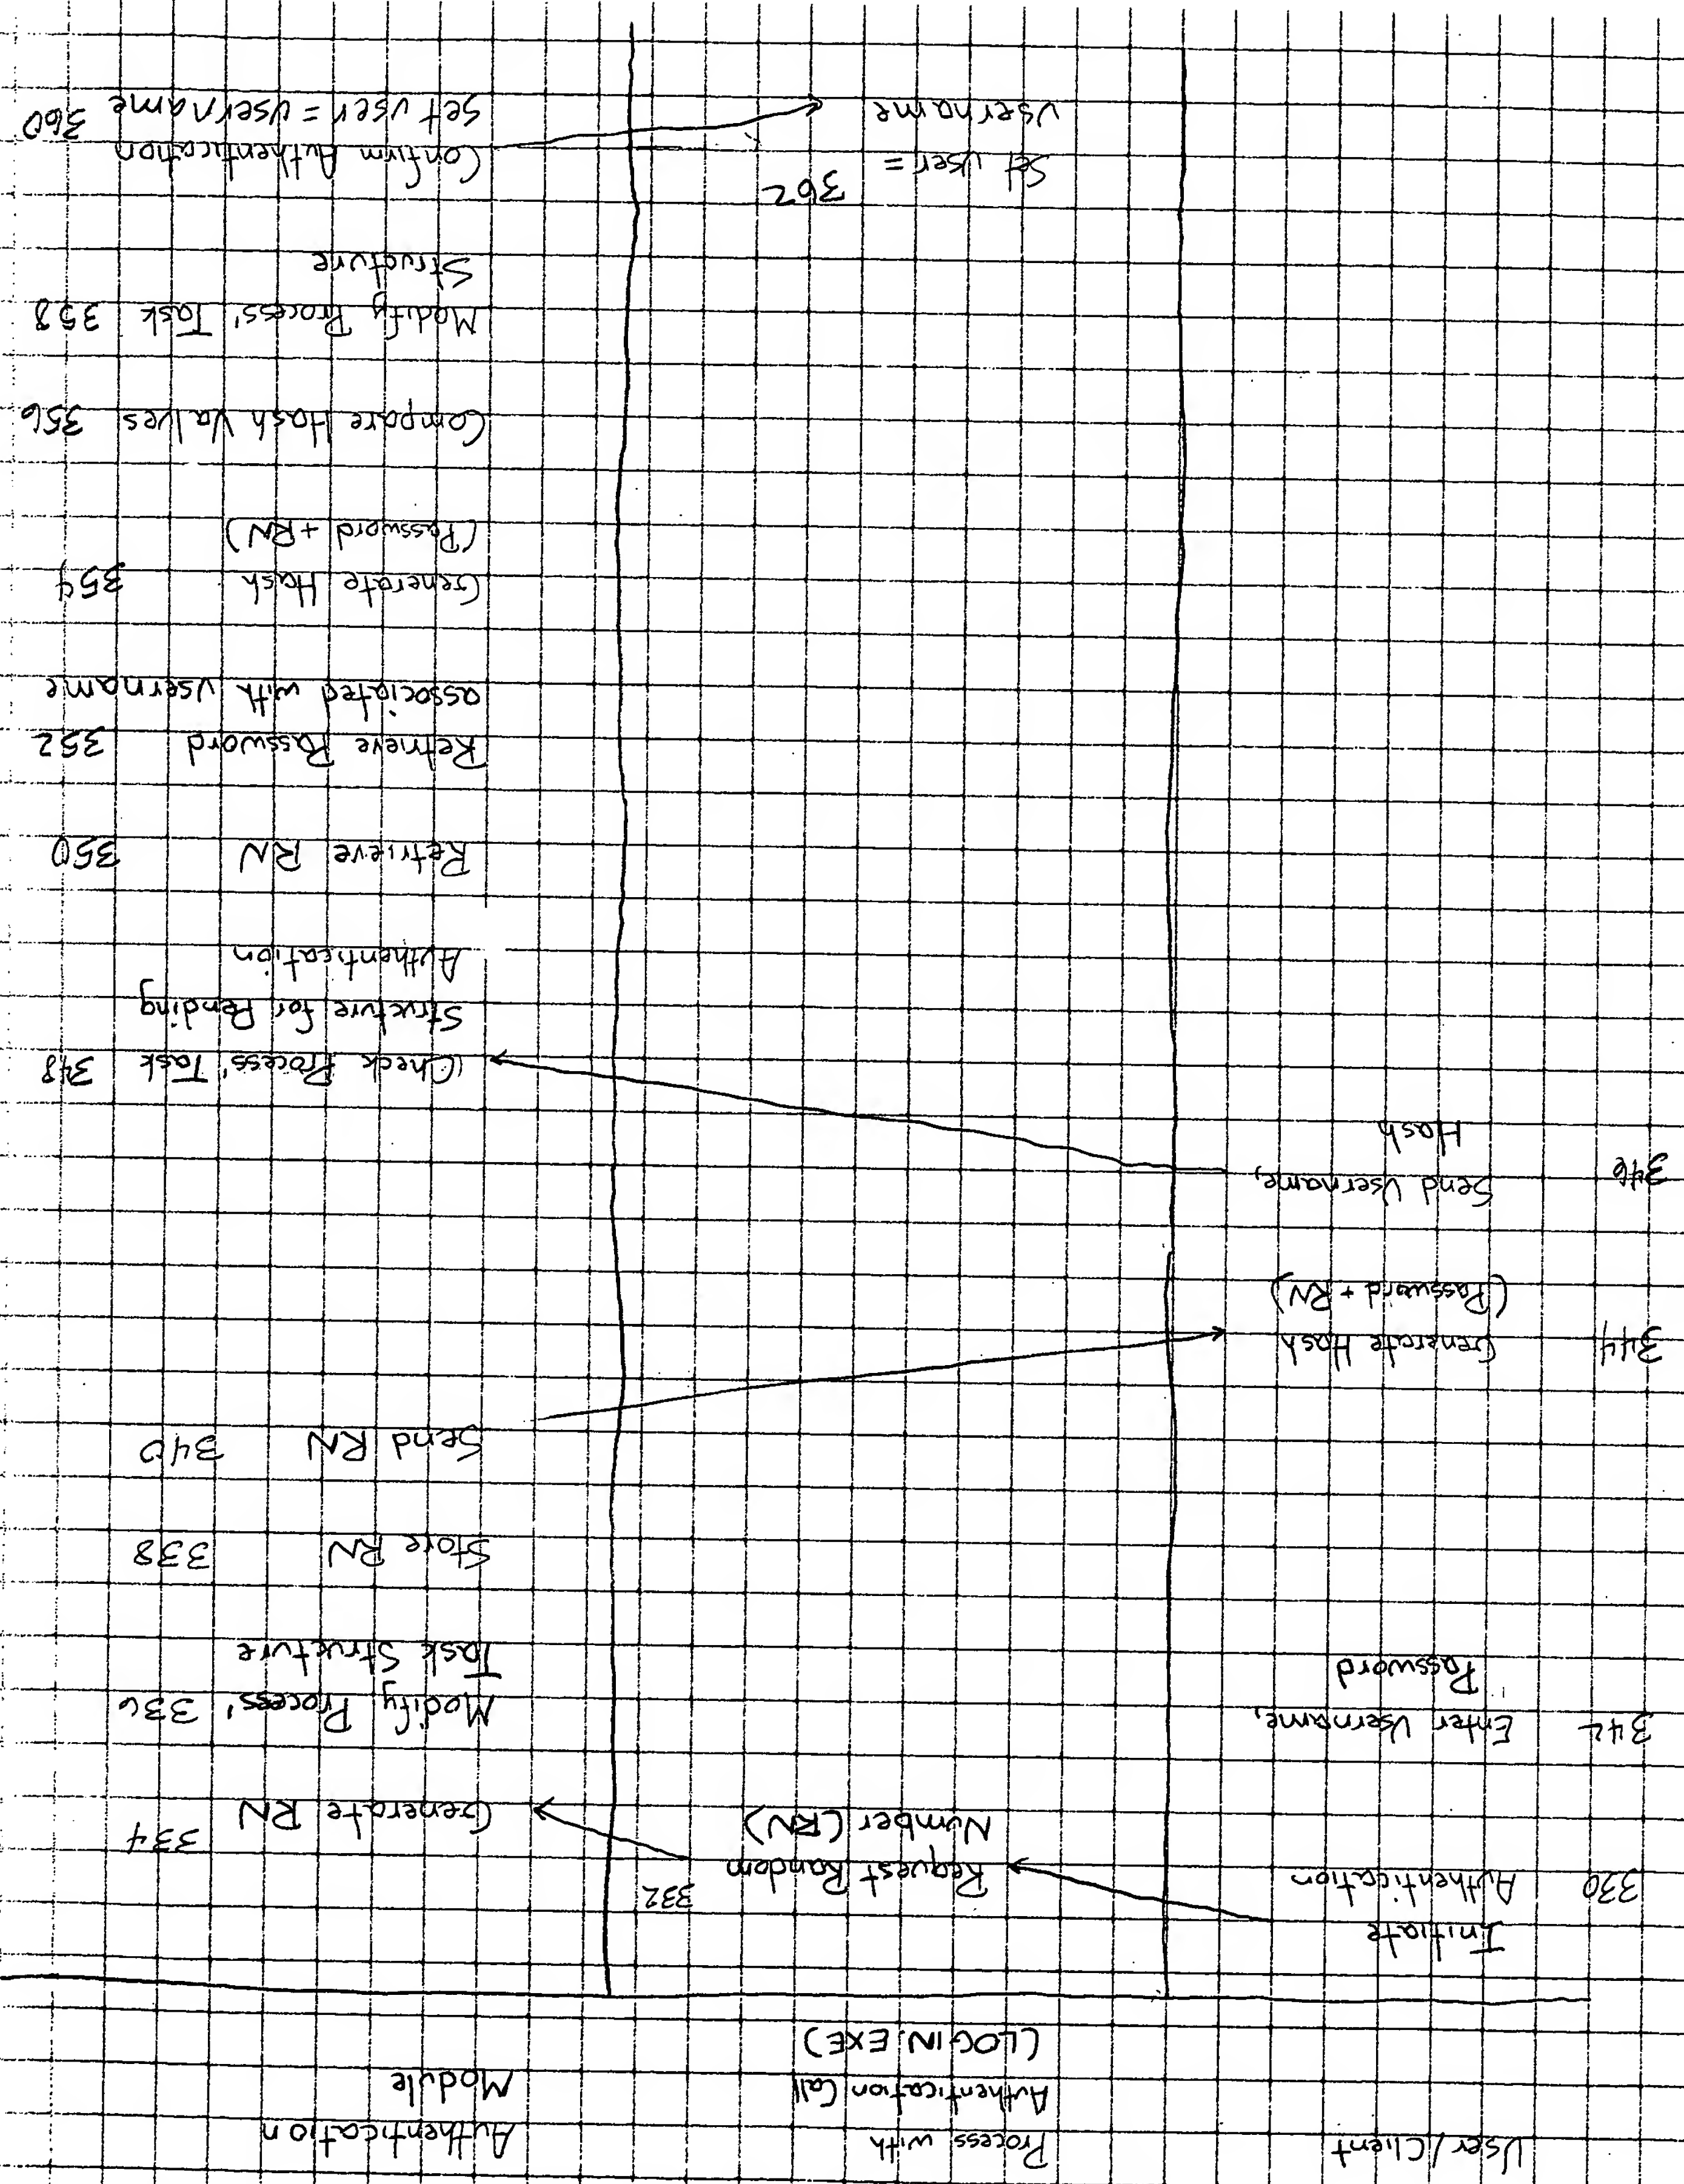 User/Client
Process with
Authentication Call
(LOGIN.EXE)
Authentication
Module
330 Initiate
Authentication
332
Request Random
Number (RN)
Generate RN 334
342 Enter Username,
Password
Modify Process' 336
Task Structure
Store RN 338
Send RN 340
344 Generate Hash
(Password + RN)
346 Send Username,
Hash
Check Process' Task 348
Structure for Pending
Authentication
Retrieve RN 350
Retrieve Password 352
associated with username
Generate Hash 354
(Password + RN)
Compare Hash Values 356
Modify Process' Task 358
Structure
Confirm Authentication 360
Set user = username
362
Set user =
username